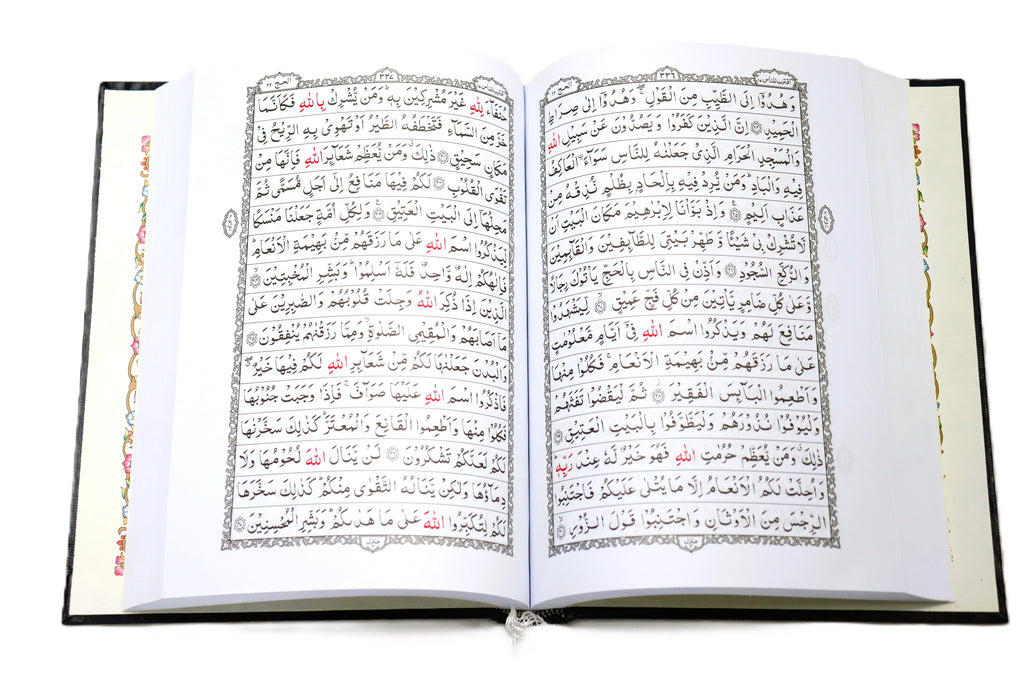 اقترب للناس ١٧ ٣٣٦ الحج ٢٢
وَهُدُوْۤا اِلَى الطَّيِّبِ مِنَ الْقَوْلِ ۖۚ وَهُدُوْۤا اِلٰى صِرَاطِ
الْحَمِيْدِ ۝ اِنَّ الَّذِيْنَ كَفَرُوْا وَيَصُدُّوْنَ عَنْ سَبِيْلِ اللّٰهِ
وَالْمَسْجِدِ الْحَرَامِ الَّذِيْ جَعَلْنٰهُ لِلنَّاسِ سَوَآءَ ۨالْعَاكِفُ
فِيْهِ وَالْبَادِ ؕ وَمَنْ يُّرِدْ فِيْهِ بِاِلْحَادٍۢ بِظُلْمٍ نُّذِقْهُ مِنْ
عَذَابٍ اَلِيْمٍ ۝ وَاِذْ بَوَّاْنَا لِاِبْرٰهِيْمَ مَكَانَ الْبَيْتِ اَنْ
لَّا تُشْرِكْ بِيْ شَيْـًٔا وَّطَهِّرْ بَيْتِيَ لِلطَّآئِفِيْنَ وَالْقَآئِمِيْنَ
وَالرُّكَّعِ السُّجُوْدِ ۝ وَاَذِّنْ فِي النَّاسِ بِالْحَجِّ يَاْتُوْكَ رِجَالًا
وَّعَلٰى كُلِّ ضَامِرٍ يَّاْتِيْنَ مِنْ كُلِّ فَجٍّ عَمِيْقٍ ۝ لِّيَشْهَدُوْا
مَنَافِعَ لَهُمْ وَيَذْكُرُوا اسْمَ اللّٰهِ فِيْۤ اَيَّامٍ مَّعْلُوْمٰتٍ
عَلٰى مَا رَزَقَهُمْ مِّنْۢ بَهِيْمَةِ الْاَنْعَامِ ۚ فَكُلُوْا مِنْهَا
وَاَطْعِمُوا الْبَآئِسَ الْفَقِيْرَ ۝ ثُمَّ لْيَقْضُوْا تَفَثَهُمْ
وَلْيُوْفُوْا نُذُوْرَهُمْ وَلْيَطَّوَّفُوْا بِالْبَيْتِ الْعَتِيْقِ ۝
ذٰلِكَ ۗ وَمَنْ يُّعَظِّمْ حُرُمٰتِ اللّٰهِ فَهُوَ خَيْرٌ لَّهٗ عِنْدَ رَبِّهٖ ؕ
وَاُحِلَّتْ لَكُمُ الْاَنْعَامُ اِلَّا مَا يُتْلٰى عَلَيْكُمْ فَاجْتَنِبُوا
الرِّجْسَ مِنَ الْاَوْثَانِ وَاجْتَنِبُوْا قَوْلَ الزُّوْرِ ۝
منزل
اقترب للناس ١٧ ٣٣٧ الحج ٢٢
حُنَفَآءَ لِلّٰهِ غَيْرَ مُشْرِكِيْنَ بِهٖ ؕ وَمَنْ يُّشْرِكْ بِاللّٰهِ فَكَاَنَّمَا
خَرَّ مِنَ السَّمَآءِ فَتَخْطَفُهُ الطَّيْرُ اَوْ تَهْوِيْ بِهِ الرِّيْحُ فِيْ
مَكَانٍ سَحِيْقٍ ۝ ذٰلِكَ ۗ وَمَنْ يُّعَظِّمْ شَعَآئِرَ اللّٰهِ فَاِنَّهَا مِنْ
تَقْوَى الْقُلُوْبِ ۝ لَكُمْ فِيْهَا مَنَافِعُ اِلٰۤى اَجَلٍ مُّسَمًّى ثُمَّ
مَحِلُّهَاۤ اِلَى الْبَيْتِ الْعَتِيْقِ ۝ وَلِكُلِّ اُمَّةٍ جَعَلْنَا مَنْسَكًا
لِّيَذْكُرُوا اسْمَ اللّٰهِ عَلٰى مَا رَزَقَهُمْ مِّنْۢ بَهِيْمَةِ الْاَنْعَامِ ؕ
فَاِلٰهُكُمْ اِلٰهٌ وَّاحِدٌ فَلَهٗۤ اَسْلِمُوْا ؕ وَبَشِّرِ الْمُخْبِتِيْنَ ۝
الَّذِيْنَ اِذَا ذُكِرَ اللّٰهُ وَجِلَتْ قُلُوْبُهُمْ وَالصّٰبِرِيْنَ عَلٰى
مَاۤ اَصَابَهُمْ وَالْمُقِيْمِي الصَّلٰوةِ ۙ وَمِمَّا رَزَقْنٰهُمْ يُنْفِقُوْنَ ۝
وَالْبُدْنَ جَعَلْنٰهَا لَكُمْ مِّنْ شَعَآئِرِ اللّٰهِ لَكُمْ فِيْهَا خَيْرٌ ۖۗ
فَاذْكُرُوا اسْمَ اللّٰهِ عَلَيْهَا صَوَآفَّ ۚ فَاِذَا وَجَبَتْ جُنُوْبُهَا
فَكُلُوْا مِنْهَا وَاَطْعِمُوا الْقَانِعَ وَالْمُعْتَرَّ ؕ كَذٰلِكَ سَخَّرْنٰهَا
لَكُمْ لَعَلَّكُمْ تَشْكُرُوْنَ ۝ لَنْ يَّنَالَ اللّٰهَ لُحُوْمُهَا وَلَا
دِمَآؤُهَا وَلٰكِنْ يَّنَالُهُ التَّقْوٰى مِنْكُمْ ؕ كَذٰلِكَ سَخَّرَهَا
لَكُمْ لِتُكَبِّرُوا اللّٰهَ عَلٰى مَا هَدٰىكُمْ ؕ وَبَشِّرِ الْمُحْسِنِيْنَ ۝
منزل